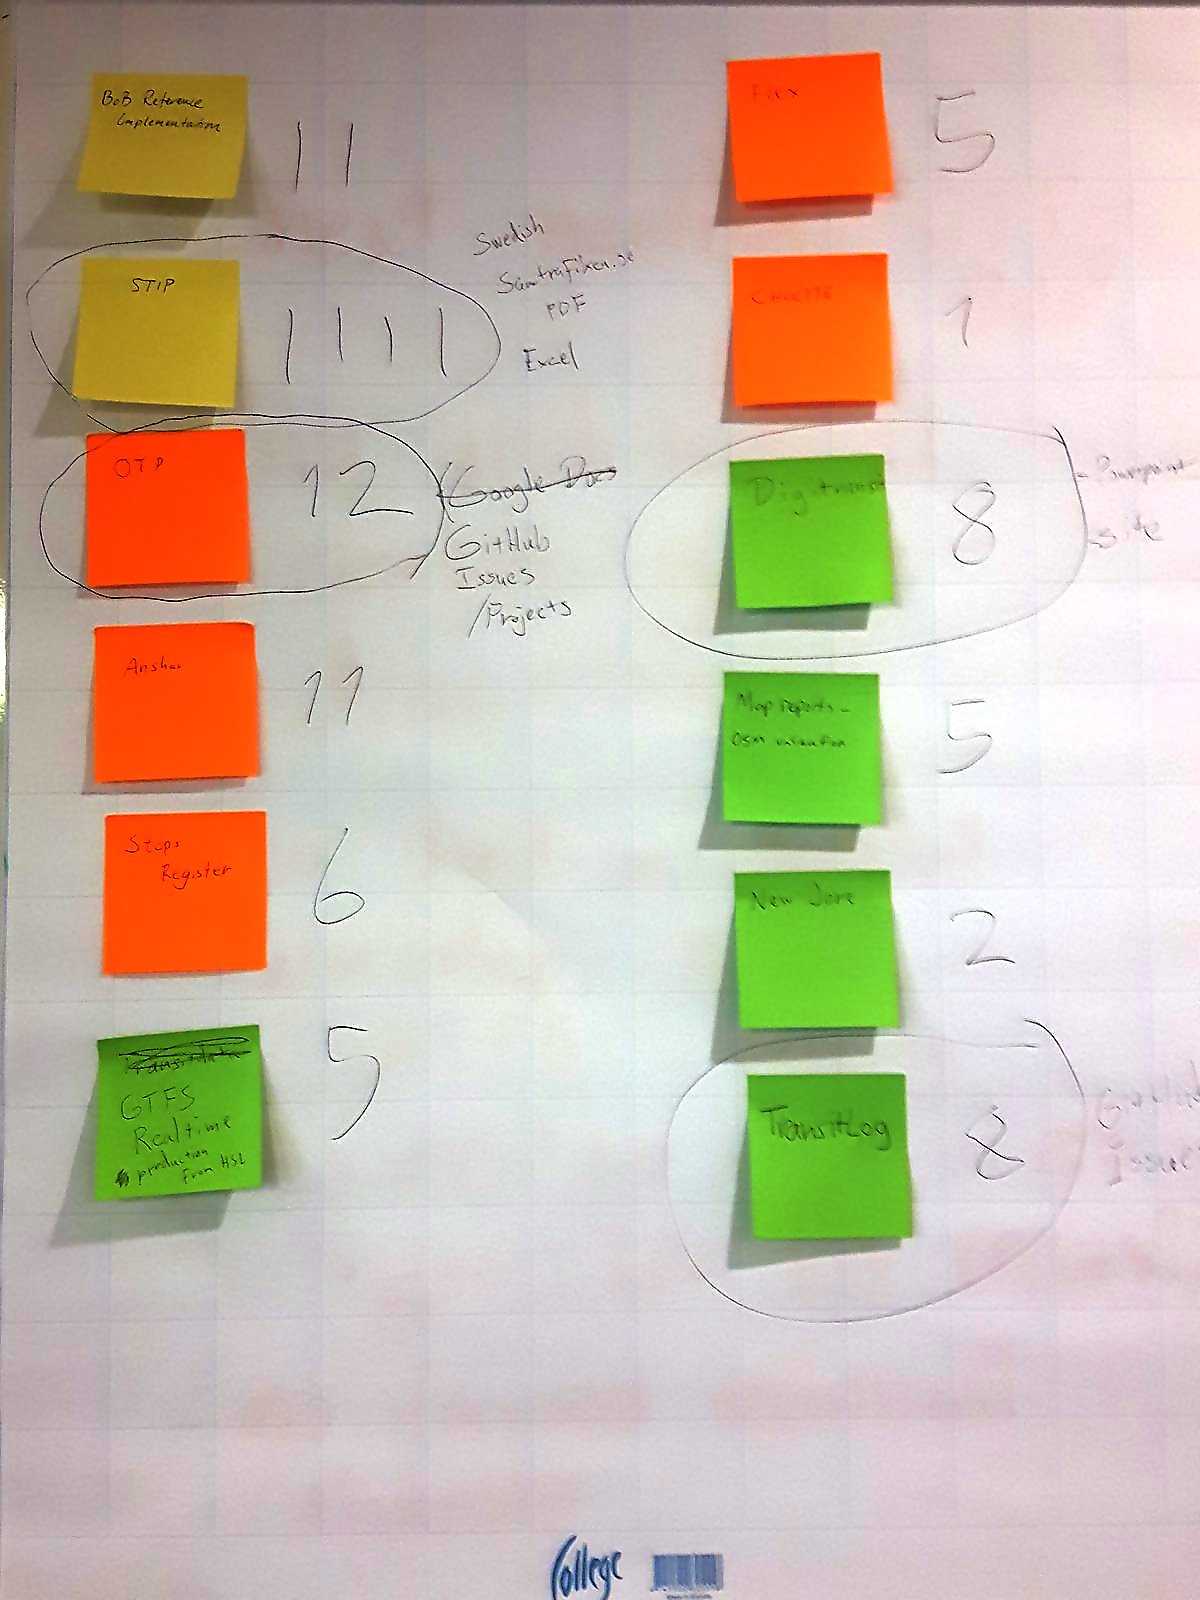 BoB Reference
Implementation
11
STIP
1111
Swedish
Samtrafiken.se
PDF
Excel
OTP
12
Google Docs
GitHub
Issues
/Projects
Anshar
11
Stops
Register
6
GTFS
Realtime
production
from HSL
5
5
Chouette
1
Digitransit
8
- Powerpoint
- site
Map reports -
OSM validation
5
New Jore
2
TransitLog
8
GitHub
Issues
College